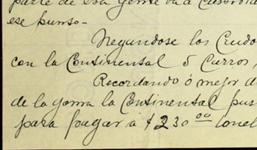 parte de esa gente va a
ese punto-
Negandose los Cuido
con la Continental ó Curros,
Recordando ó mejor d
de la goma la Continental pus
para pagar á $230 00 tonel